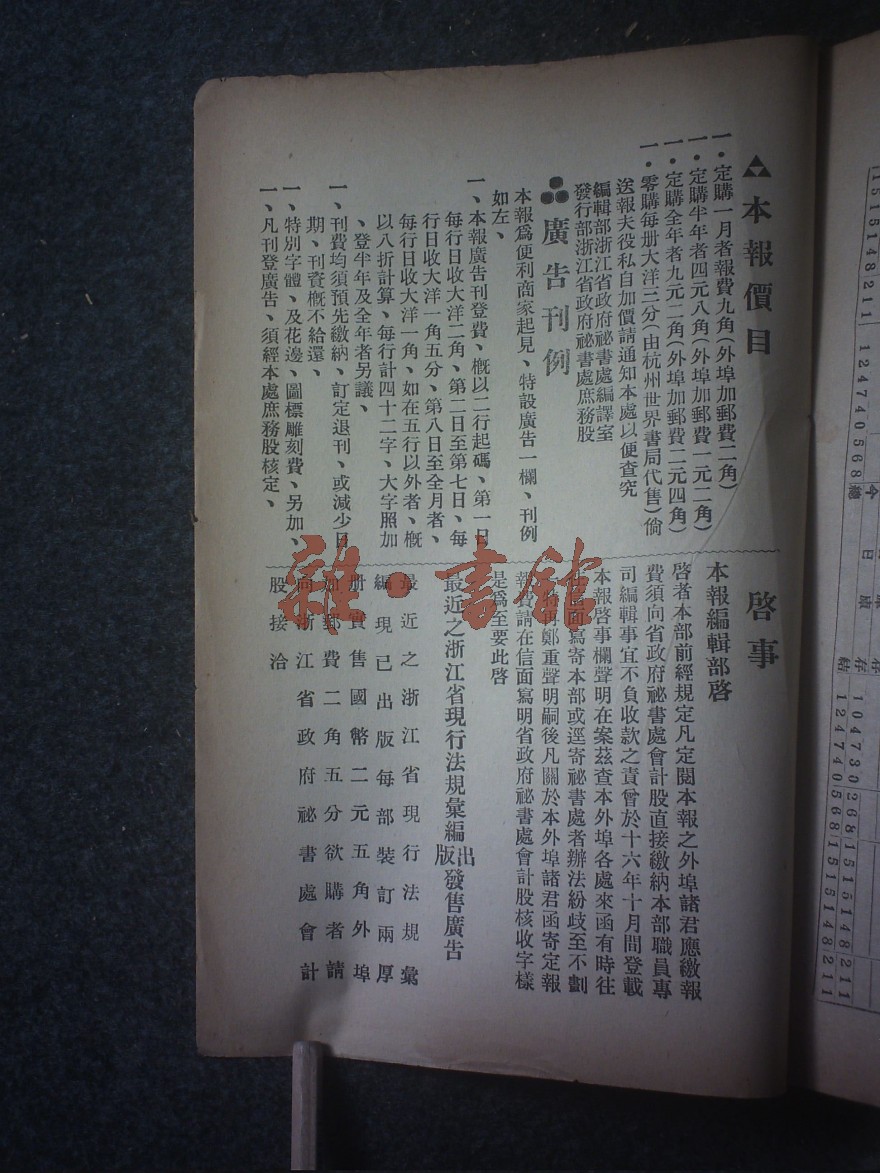 本報價目
一・定購一月者報費九角(外埠加郵費二角)
一・定購半年者四元八角(外埠加郵費一元二角)
一・定購全年者九元二角(外埠加郵費二元四角)
一・零購每册大洋三分(由杭州世界書局代售)倘
送報夫役私自加價請通知本處以便查究
編輯部浙江省政府祕書處編譯室
發行部浙江省政府祕書處庶務股
廣告刊例
本報爲便利商家起見、特設廣告一欄、刊例
如左、
一、本報廣告刊登費、概以二行起碼、第一日
每行日收大洋二角、第二日至第七日、每
行日收大洋一角五分、第八日至全月者、
每行日收大洋一角、如在五行以外者、概
以八折計算、每行計四十二字、大字照加
、登半年及全年者另議、
一、刊費均須預先繳納、訂定退刊、或減少日
期、刊資概不給還、
一、特別字體、及花邊、圖標雕刻費、另加、
一、凡刊登廣告、須經本處庶務股核定、
啓事
本報編輯部啓
啓者本部前經規定凡定閱本報之外埠諸君應繳報
費須向省政府祕書處會計股直接繳納本部職員專
司編輯事宜不負收款之責曾於十六年十月間登載
本報啓事欄聲明在案茲查本外埠各處來函有時往
信面寫寄本部或逕寄祕書處者辦法紛歧至不劃
特再鄭重聲明嗣後凡關於本外埠諸君函寄定報
報費請在信面寫明省政府祕書處會計股核收字樣
是爲至要此啓
最近之浙江省現行法規彙編出版發售廣告
最近之浙江省現行法規彙
編現已出版每部裝訂兩厚
册實售國幣二元五角外埠
加郵費二角五分欲購者請
向浙江省政府祕書處會計
股接洽
雜・書館